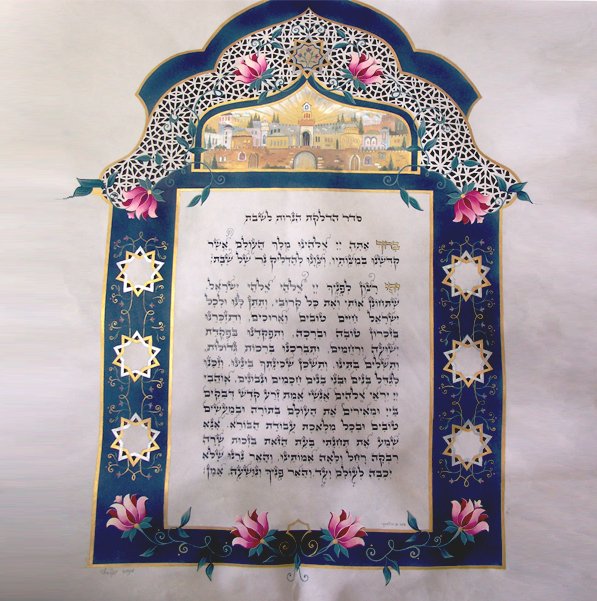 סדר הדלקת הנרות לשבת
ברוך אתה יי אלהינו מלך העולם אשר
קדשנו במצותיו, וצונו להדליק נר של שבת:
יהי רצון לפניך יי אלהי אלהי ישראל,
שתחונן אותי ואת כל קרובי, ותתן לנו ולכל
ישראל חיים טובים וארוכים, ותזכרנו
בזכרון טובה וברכה, ותפקדנו בפקדת
ישועה ורחמים, ותברכנו ברכות גדולות,
ותשלים בתינו, ותשכן שכינתך בינינו, וזכנו
לגדל בנים ובני בנים חכמים ונבונים, אוהבי
יי יראי אלהים אנשי אמת זרע קדש דבקים
ביי ומאירים את העולם בתורה ובמעשים
טובים ובכל מלאכת עבודת הבורא. אנא
שמע את תחנתי בעת הזאת בזכות שרה
רבקה רחל ולאה אמותינו, והאר נרנו שלא
יכבה לעולם ועד והאר פניך ונושעה. אמן: